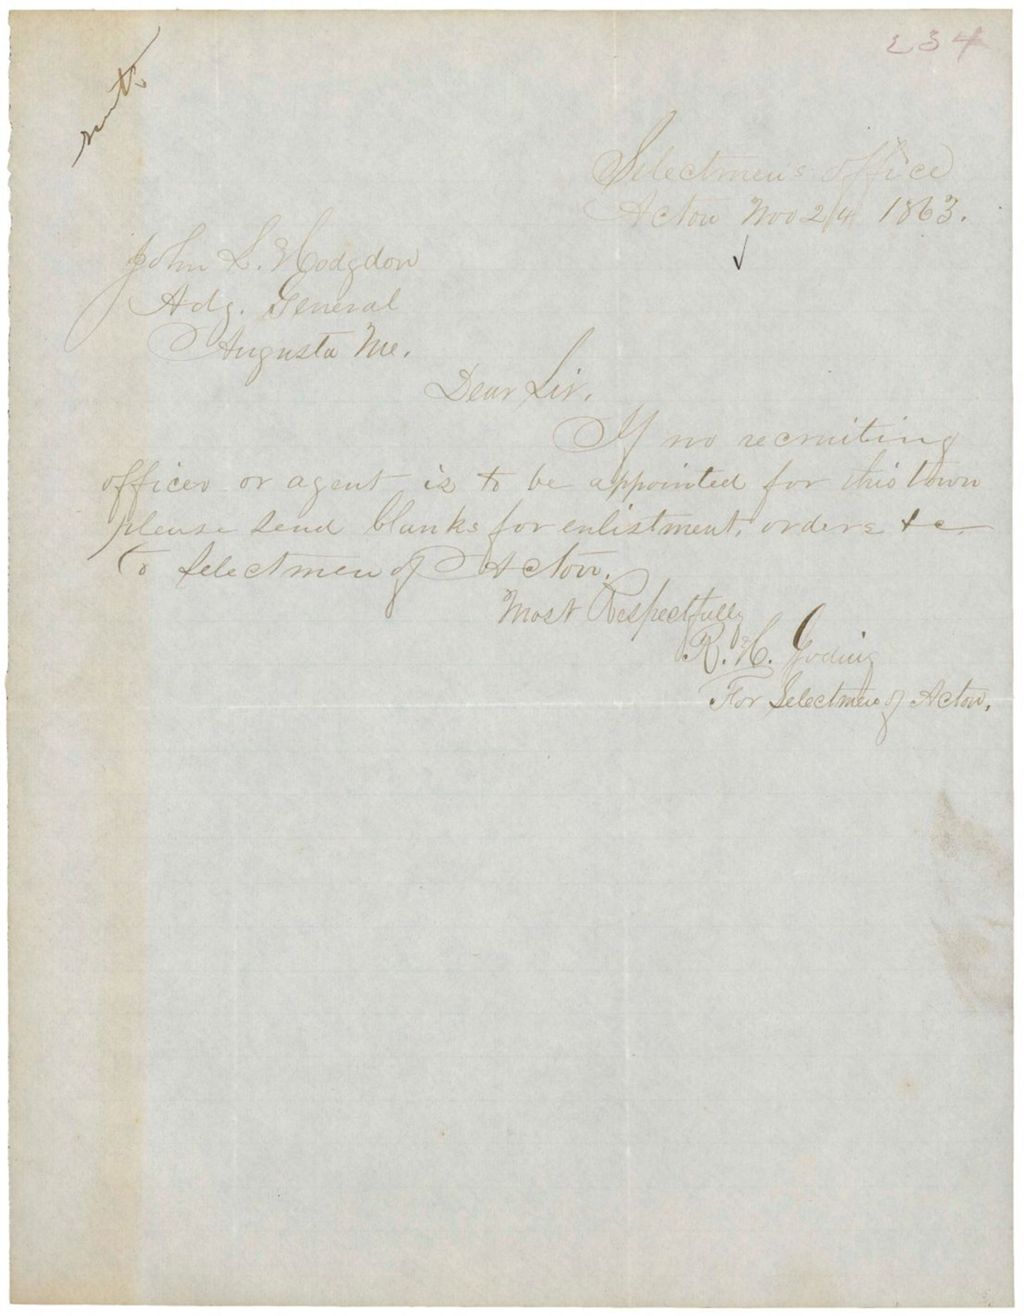 234
Selectmen's office
Acton Nov 24 1863.
John L. Hodgdon
Adg. General
Augusta Me.
Dear Sir.
If no recruiting
officer or agent is to be appointed for this town
please send blanks for enlistment, orders &c
to Selectmen of Acton.
Most Respectfully
R. H. Goding
For Selectmen of Acton.